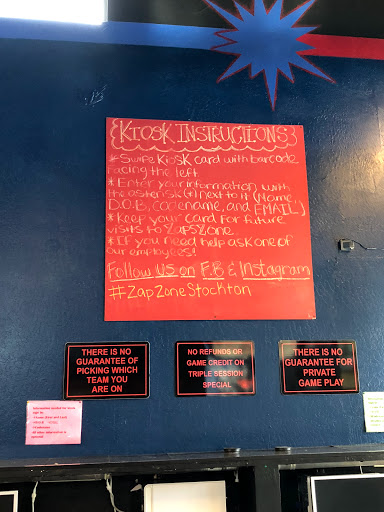 KIOSK INSTRUCTIONS
*Swipe Kiosk card with barcode
facing the left
*Enter your information with
the asterisk(*) next to it (Name
D.O.B, gamename, and EMAIL)
*Keep your card for future
visits to Zap Zone
*If you need help ask one of
our employees!
Follow us on F.B & Instagram
#ZapZoneStockton
THERE IS NO
GUARANTEE OF
PICKING WHICH
TEAM YOU
ARE ON
NO REFUNDS OR
GAME CREDIT ON
TRIPLE SESSION
SPECIAL
THERE IS NO
GUARANTEE FOR
PRIVATE
GAME PLAY